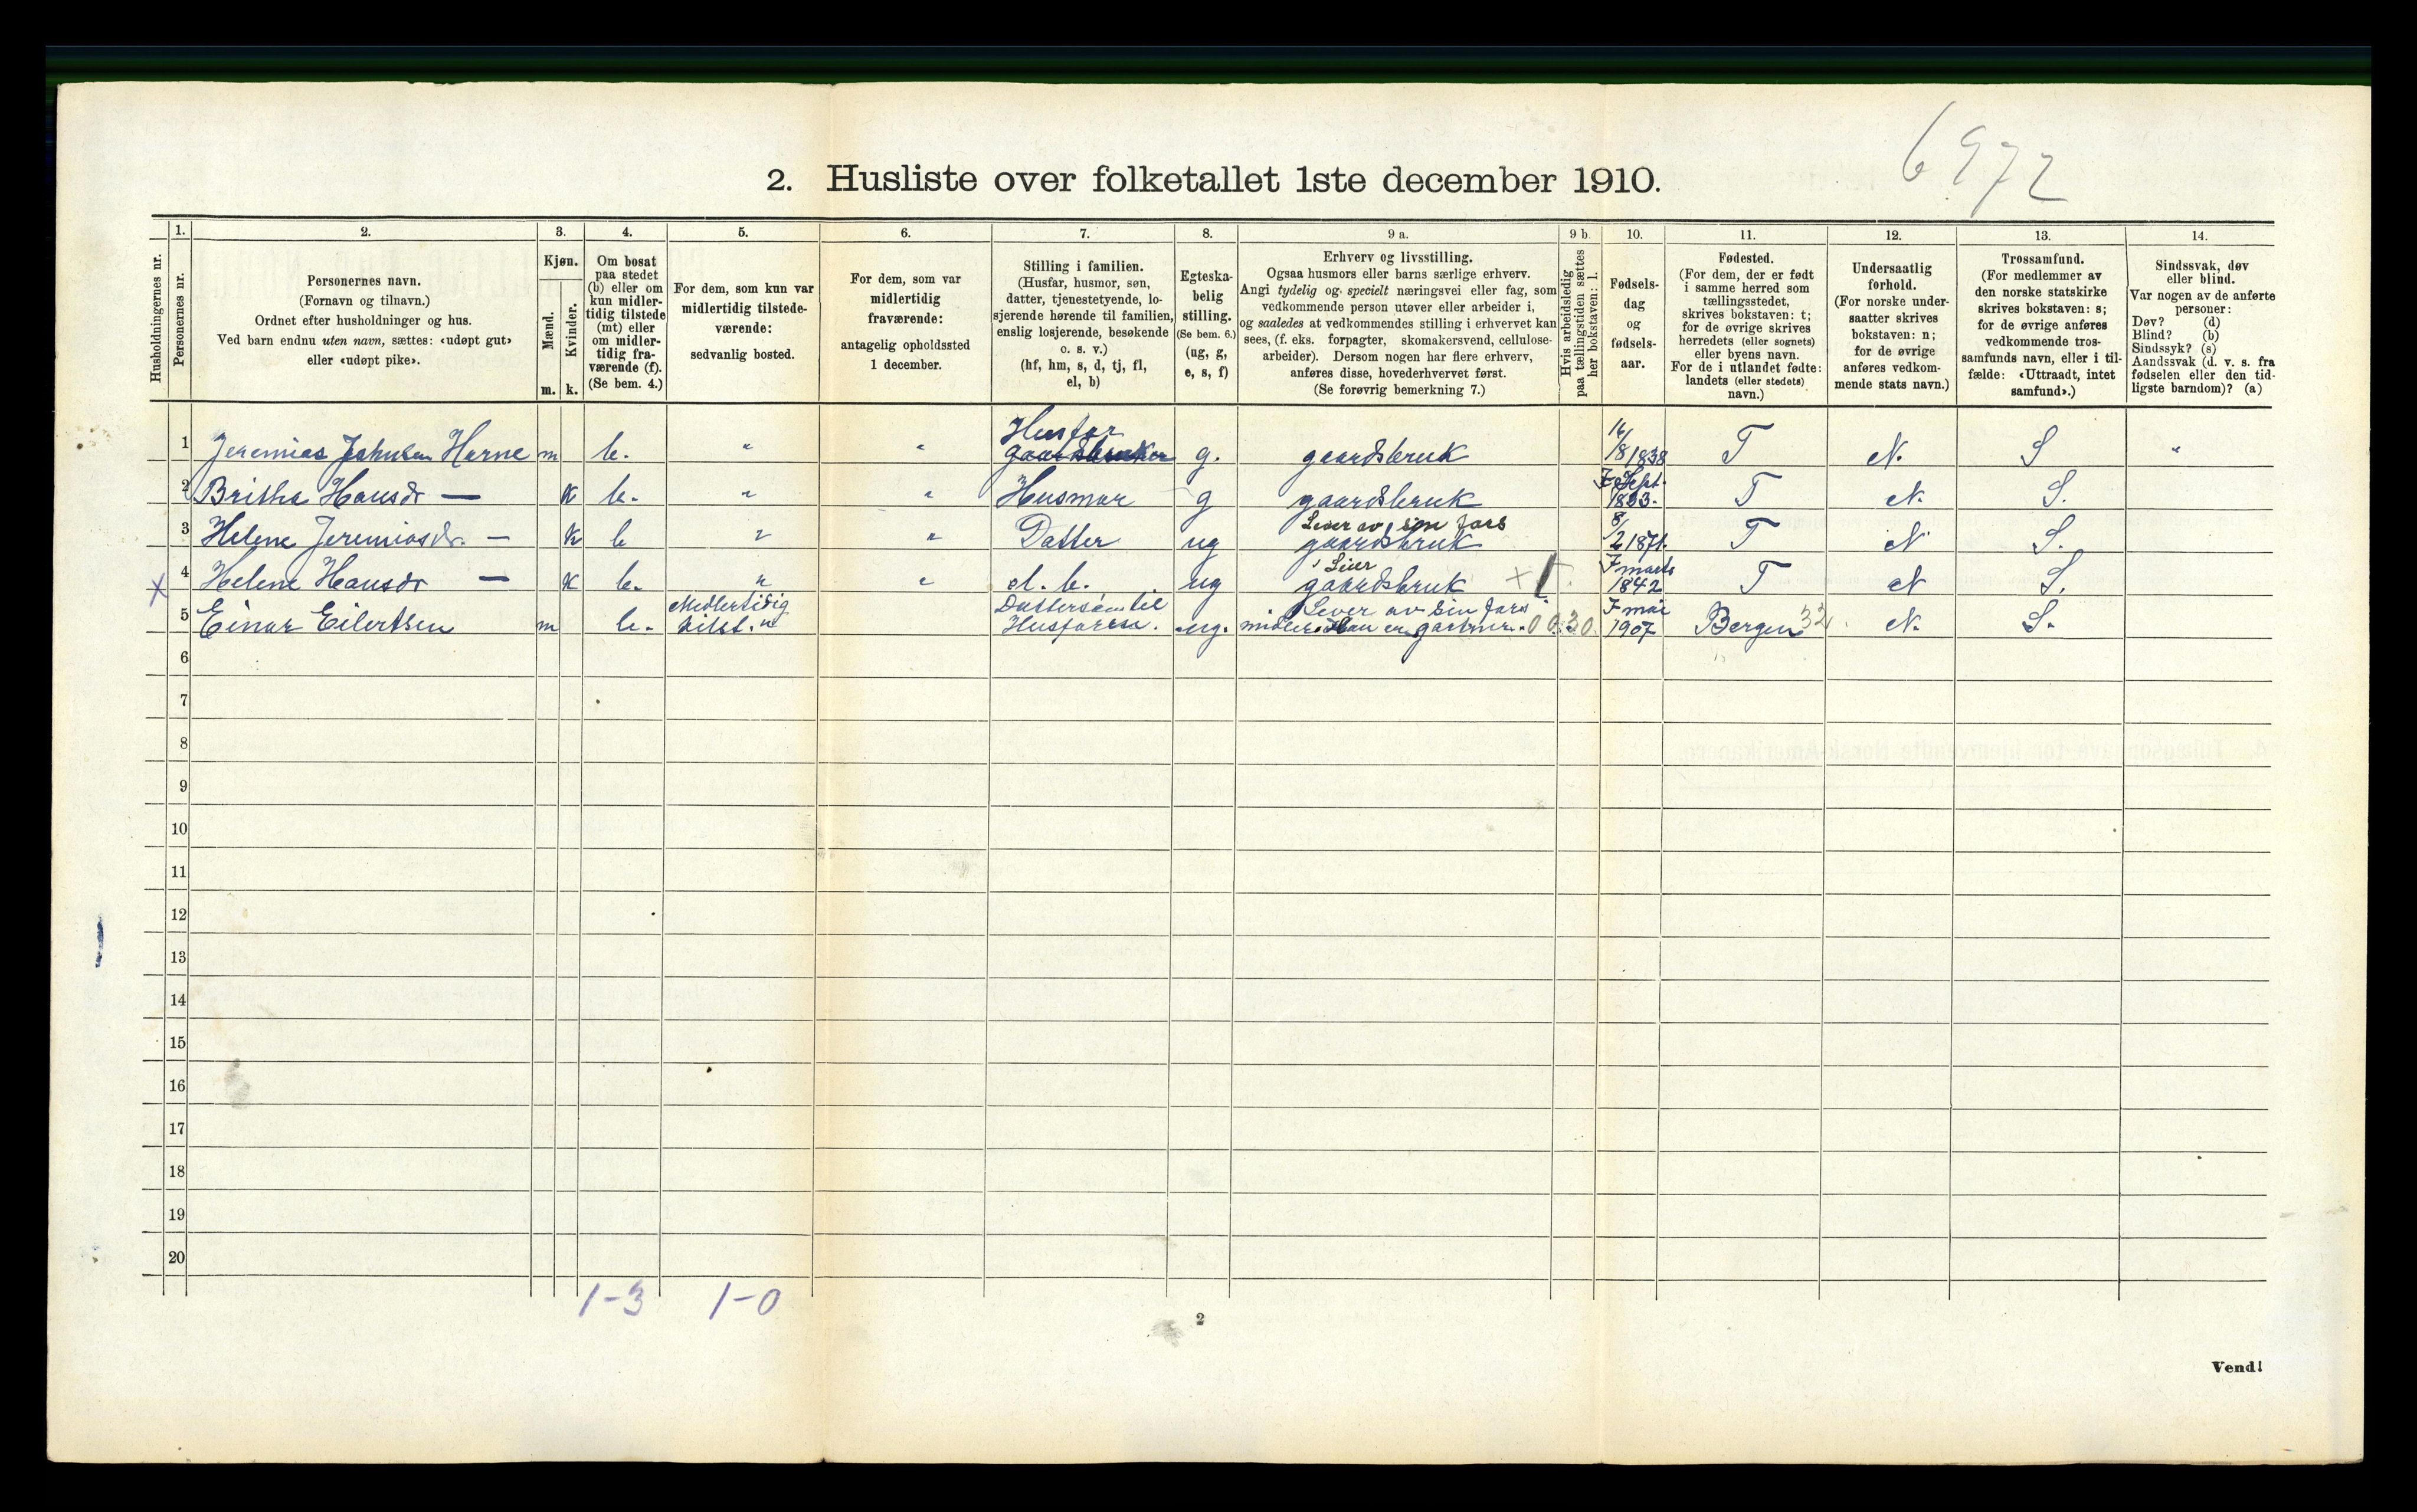 6972
2. Husliste over folketallet 1ste december 1910.
Husholdningernes nr.
1.
Personernes nr.
2.
Personernes navn.
(Fornavn og tilnavn.)
Ordnet efter husholdninger og hus.
Ved barn endnu uten navn, sættes: «udøpt gut»
eller «udøpt pike».
3.
Kjøn.
Mænd.
Kvinder.
m. k.
4.
Om bosat
paa stedet
(b) eller om
kun midler-
tidig tilstede
(mt) eller
om midler-
tidig fra-
værende (f).
(Se bem. 4.)
5.
For dem, som kun var
midlertidig tilstede-
værende:
sedvanlig bosted.
6.
For dem, som var
midlertidig
fraværende:
antagelig opholdssted
1 december.
7.
Stilling i familien.
(Husfar, husmor, søn,
datter, tjenestetyende, lo-
sjerende hørende til familien,
enslig losjerende, besøkende
o. s. v.)
(hf, hm, s, d, tj, fl,
el, b)
8.
Egteska-
belig
stilling.
(Se bem. 6.)
(ug, g,
e, s, f)
9 a.
Erhverv og livsstilling.
Ogsaa husmors eller barns særlige erhverv.
Angi tydelig og specielt næringsvei eller fag, som
vedkommende person utøver eller arbeider i,
og saaledes at vedkommendes stilling i erhvervet kan
sees, (f. eks. forpagter, skomakersvend, cellulose-
arbeider). Dersom nogen har flere erhverv,
anføres disse, hovederhvervet først.
(Se forøvrig bemerkning 7.)
9 b.
Hvis arbeidsledig
paa tællingstiden sættes
her bokstaven: l.
10.
Fødsels-
dag
og
fødsels-
aar.
11.
Fødested.
(For dem, der er født
i samme herred som
tællingsstedet,
skrives bokstaven: t;
for de øvrige skrives
herredets (eller sognets)
eller byens navn.
For de i utlandet fødte:
landets (eller stedets)
navn.)
12.
Undersaatlig
forhold.
(For norske under-
saatter skrives
bokstaven: n;
for de øvrige
anføres vedkom-
mende stats navn.)
13.
Trossamfund.
(For medlemmer av
den norske statskirke
skrives bokstaven: s;
for de øvrige anføres
vedkommende tros-
samfunds navn, eller i til-
fælde: «Uttraadt, intet
samfund».)
14.
Sindssvak, døv
eller blind.
Var nogen av de anførte
personer:
Døv? (d)
Blind? (b)
Sindssyk? (s)
Aandssvak (d. v. s. fra
fødselen eller den tid-
ligste barndom)? (a)
1 Jeremias Johnsen Herne m b. " " Husfar gaardbruker g. gaardsbruk 16/8 1838 T N. S "
2 Britha Hansdr — K b. " " Husmor g gaardsbruk 7 Sept. T N. S.
3 Helene Jeremiasdr. — K b " " Datter ug Lever av sin fars gaardsbruk 8/2 1871. T N S.
X 4 Helene Hansdr — K b. " " el. b. ug gaardsbruk + 7 marts 1842 T N S.
5 Einar Eilertsen m b. Medlertidig tilst. " Dattersøn til Husfaren. ug. Lever av sin fars midler. Han er gartner. 7 mai 1907 Bergen 32 N. S.
6
7
8
9
10
11
12
13
14
15
16
17
18
19
20
1-3 1-0
2
Vend!